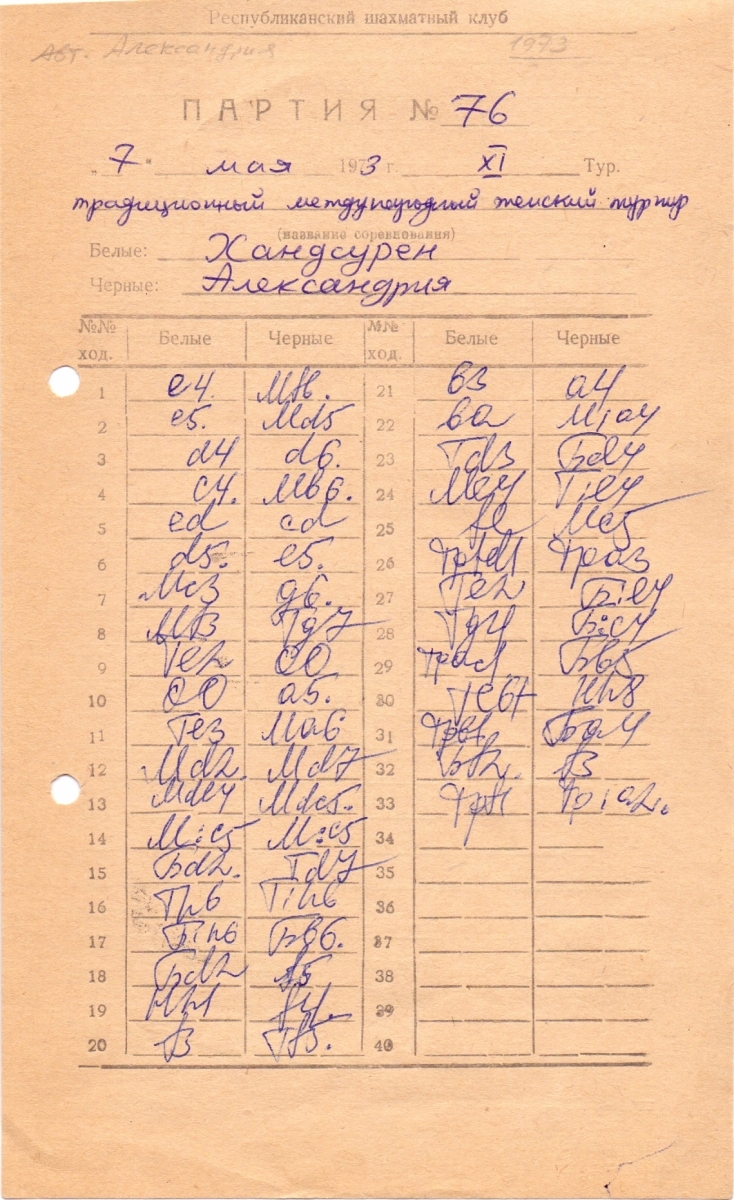 Республиканский шахматный клуб
Авт. Александрия 1973
ПАРТИЯ № 76
„7" мая 1973 г. XI Тур.
традиционный международный женский турнир
(название соревнования)
Белые: Хандсурен
Черные: Александрия
№№ ход. Белые Черные №№ ход. Белые Черные
1 e4. Mf6. 21 b3 a4
2 e5. Md5 22 ba M:a4
3 d4 d6. 23 Td3 Бd4
4 c4. Mb6. 24 Me4 T:e4
5 ed cd 25 fe Mc5
6 d5. e5. 26 a3
7 Mc3 g6. 27 Te2 Б:e4
8 Mf3 Tg7 28 Tg4 Б:c4
9 Te2 OO 29 Бb5
10 OO a5. 30 Te6+ Kh8
11 Te3 Ma6 31 Бg4
12 Md2. Md7 32 Бf2. f3
13 Mde4 Mdc5. 33 Фf1 Ф:a2.
14 M:c5 M:c5 34
15 Бd2. Td7 35
16 Th6 T:h6 36
17 Б:h6 Бb6. 37
18 Бd2 f5 38
19 Kh1 f4. 39
20 f3 Tf5. 40